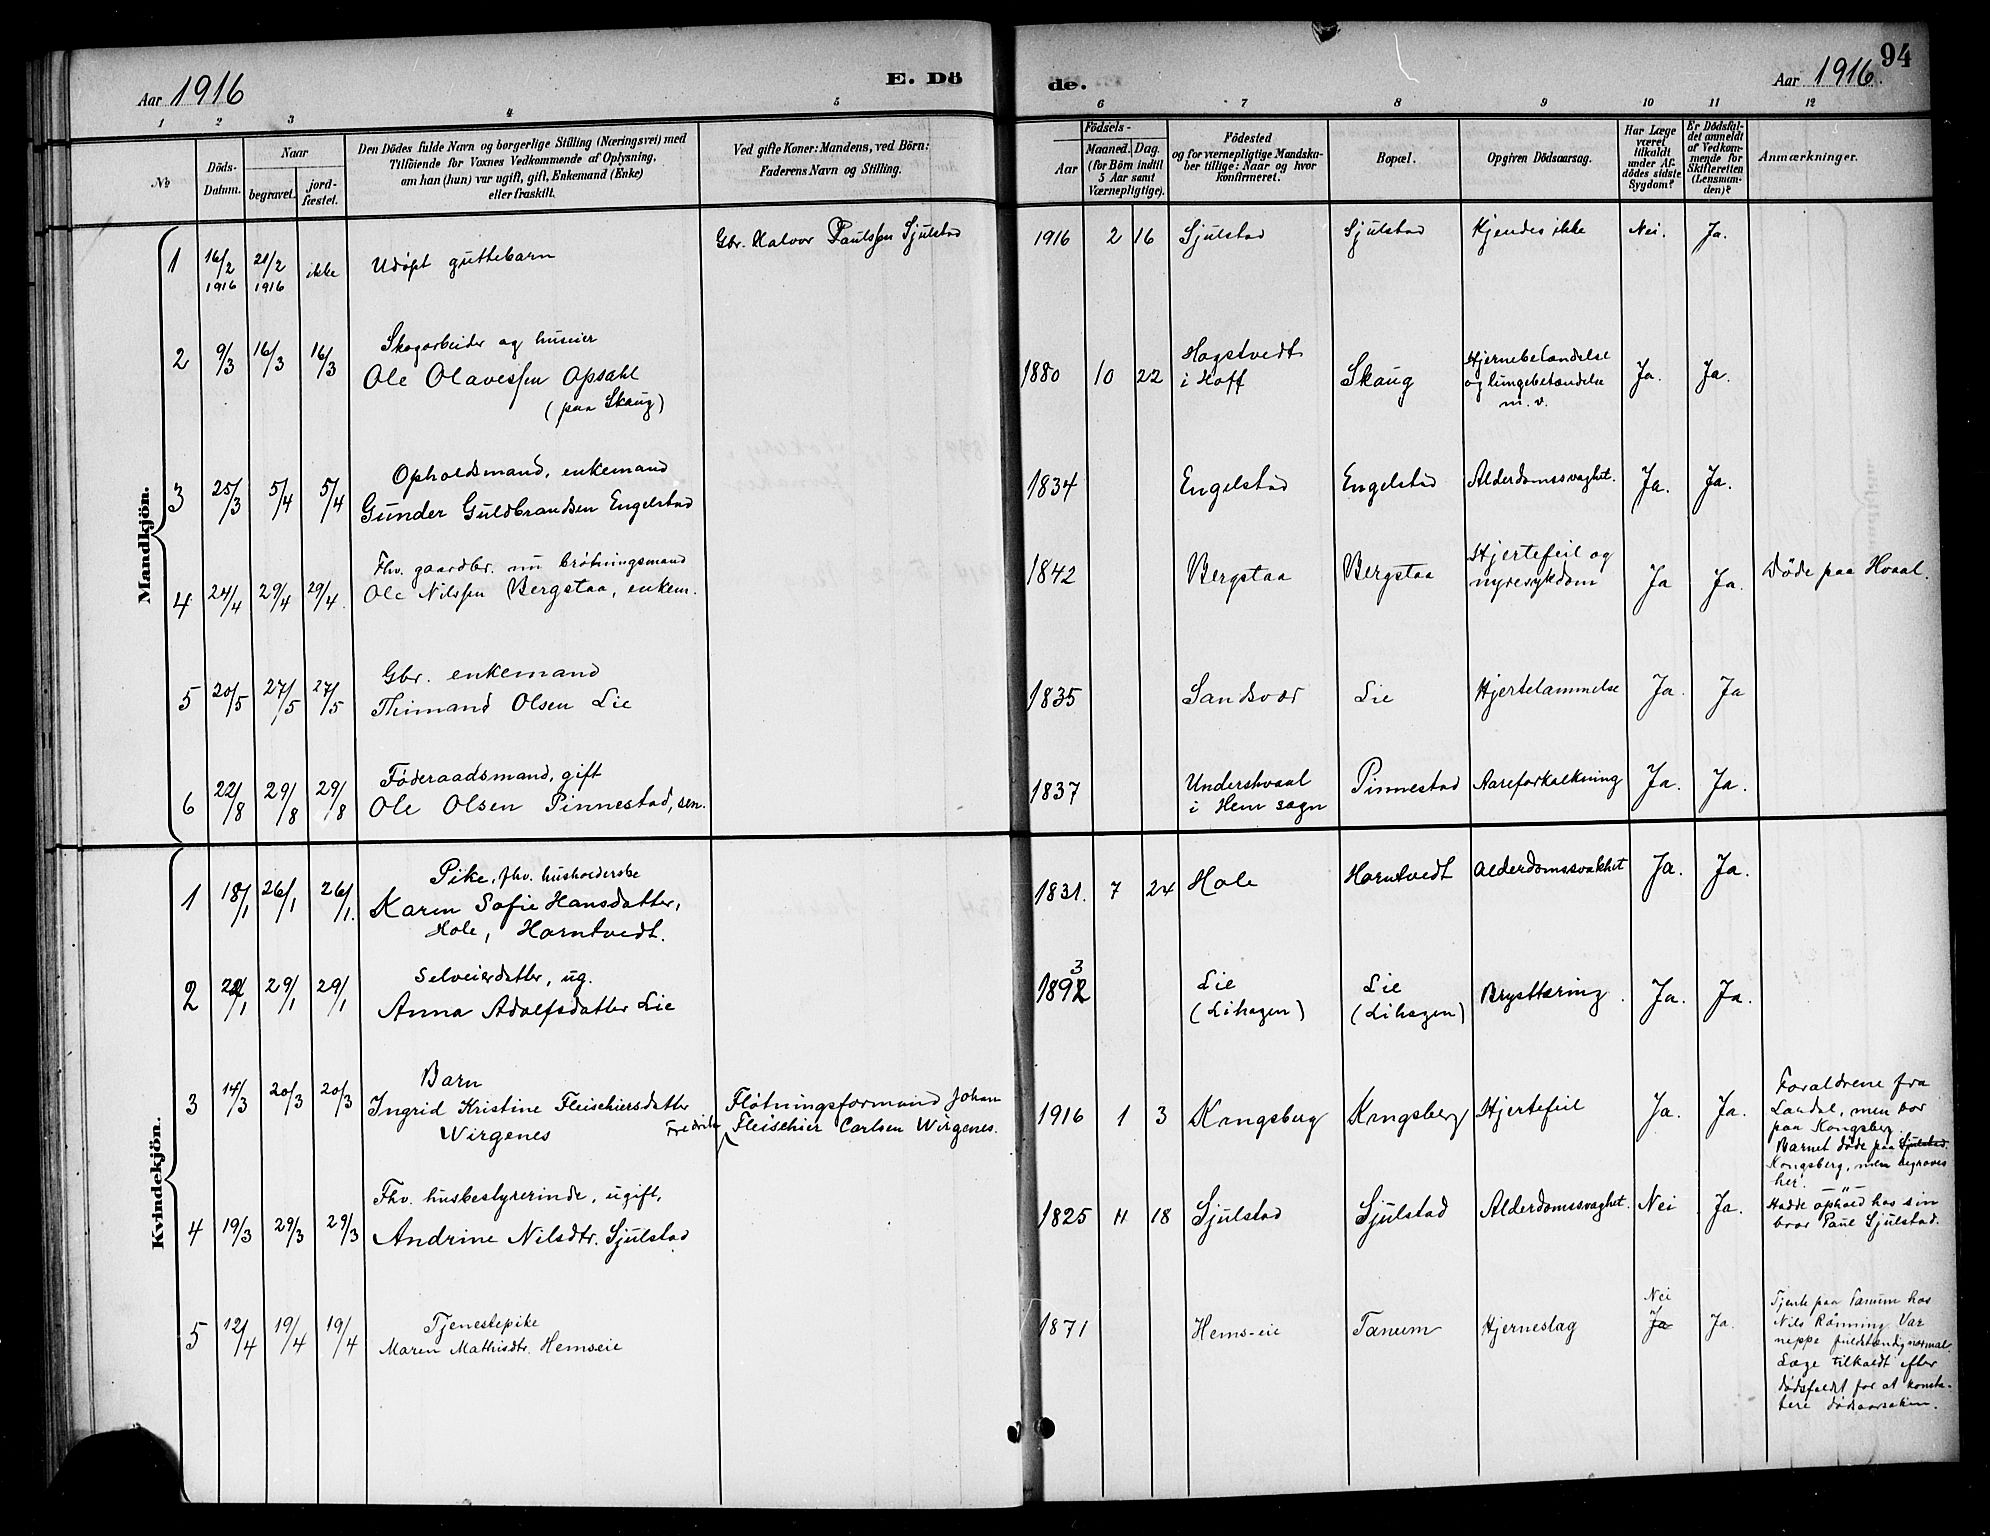 94
Aar 1916
E. Dö
de.
Aar 1916.
1 2 3 4 5 6 7 8 9 10 11 12
№
Döds-
Datum.
Naar
begravet.
jord-
fæstet.
Den Dödes fulde Navn og borgerlige Stilling (Næringsvei) med
Tilföiende for Voxnes Vedkommende af Oplysning,
om han (hun) var ugift, gift, Enkemand (Enke)
eller fraskilt.
Ved gifte Koner: Mandens, ved Börn:
Faderens Navn og Stilling.
Födsels-
Aar
Maaned. Dag.
(for Börn indtil
5 Aar samt
Værnepligtige).
Födested
og for værnepligtige Mandska-
ber tillige: Naar og hvor
konfirmeret.
Bopæl.
Opgiven Dödsaarsag.
Har Læge
været
tilkaldt
under Af-
dödes sidste
Sygdom?
Er Dödsfal-
det anmeldt
af Vedkom-
mende for
Skifteretten
(Lensman-
den)?
Anmærkninger.
Mandkjön.
1 16/2 1916 21/2 1916 ikke Udøpt guttebarn
Gbr. Halvor Paulssen Sjulstad
1916 2 16 Sjulstad Sjulstad Kjendes ikke Nei. Ja.
2 9/3 16/3 16/3
Skogarbeider og huseier
Ole Olavessen Opsahl
(paa Skaug)
1880 10 22
Hogstvedt
i Hoff
Skaug
Hjernebetændelse
og lungebetændelse
m. v.
Ja. Ja.
3 25/3 5/4 5/4
Opholdsmand, enkemand
Gunder Guldbrandsen Engelstad
1834 Engelstad Engelstad Alderdomssvaghet. Ja. Ja.
4 24/4 29/4 29/4.
Fhv. gaardbr. nu brøtningsmand
Ole Nilssen Bergstaa, enkem.
1842 Bergstaa Bergstaa
Hjertefeil og
nyresykdom
Ja Ja. Døde paa Hvaal.
5 20/5 27/5 27/5
Gbr. enkemand
Thimand Olsen Lie
1835 Sandsvær Lie Hjertelammelse Ja. Ja
6 22/8 29/8 29/8
Føderaadsmand, gift
Ole Olsen Pinnestad, sen.
1837
Undershvaal
i Hem sogn
Pinnestad Aareforkalkning Ja. Ja.
Kvindekjön.
1 18/1 26/1 26/1.
Pike, fhv. husholderske
Karen Sofie Hansdatter,
Hole, Horntvedt.
1831. 7 24 Hole Horntvedt Alderdomssvakhet Ja. Ja.
2 22/1 29/1 29/1
Selveierdatter, ug.
Anna Adolfsdatter Lie
3
1892
Lie
(Lihagen)
Lie
(Lihagen)
Brysttæring. Ja. Ja.
3 14/3 20/3 20/3
Barn
Ingrid Kristine Fleischersdatter
Wirgenes
Fløtningsformand Johan
Fredrik Fleischer Carlsen Wirgenes.
1916 1 3 Kongsberg Kongsberg Hjertefeil Ja. Ja.
Forældrene fra
Laudal, men bor
paa Kongsberg.
Barnet døde paa Sjulstad
Kongsberg, men begraves
her.
4 19/3 29/3 29/3
Fhv. husbestyrerinde, ugift,
Andrine Nilsdtr. Sjulstad
1825 11 18 Sjulstad Sjulstad Alderdomssvaghet. Nei Ja.
Hadde ophold hos sin
bror Paul Sjulstad.
5 12/4 19/4 19/4
Tjenestepike
Maren Mathisdtr. Hemseie
1871 Hems-eie Tanum Hjerneslag
Nei
Ja
Ja.
Tjente paa Tanum hos
Nils Rønning. Var
neppe fuldstændig normal.
Læge tilkaldt efter
dødsfaldet for at konsta-
tere dødsaarsaken.